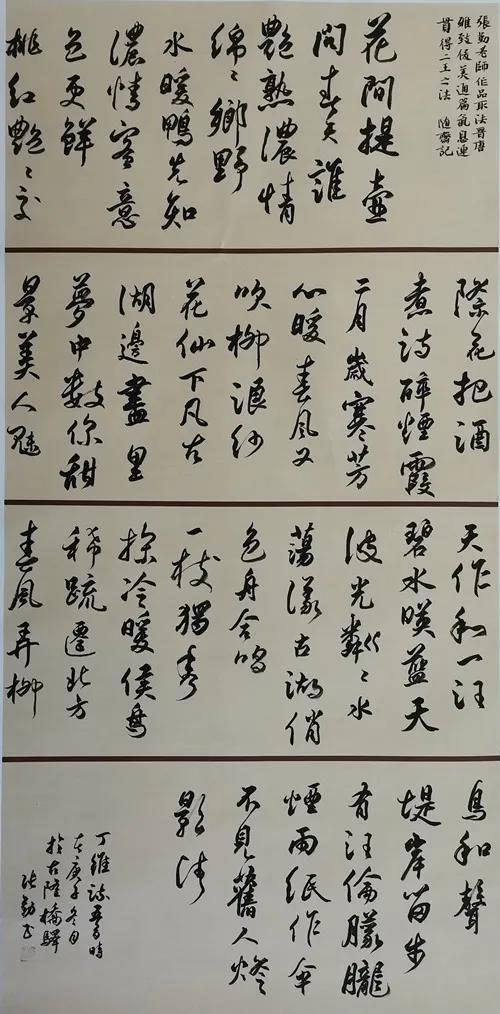 張勁老師作品取法晉唐
雅致優美通篇氣息連
貫得二王之法 随齋記
花間提壺
問春天誰
艷熟濃情
綿〻鄉野
水暖鴨先知
濃情蜜意
色更鮮
桃紅艷〻交
際花把酒
煮詩醉煙霞
二月歲寒芳
心暖春風又
吹柳浪紗
花仙下凡古
湖邊畫里
夢中數你甜
景美人魅
天作和一汪
碧水映藍天
波光粼〻水
蕩漾古湖俏
色舟合鳴
一枝獨秀
探冷暖候鳥
稀疏遷北方
春風弄柳
鳥和聲
堤岸留步
有汪倫朦朧
煙雨紙作傘
不見舊人燈
影清
丁維時
在庚子冬月
於古隆橋驛
張勁書